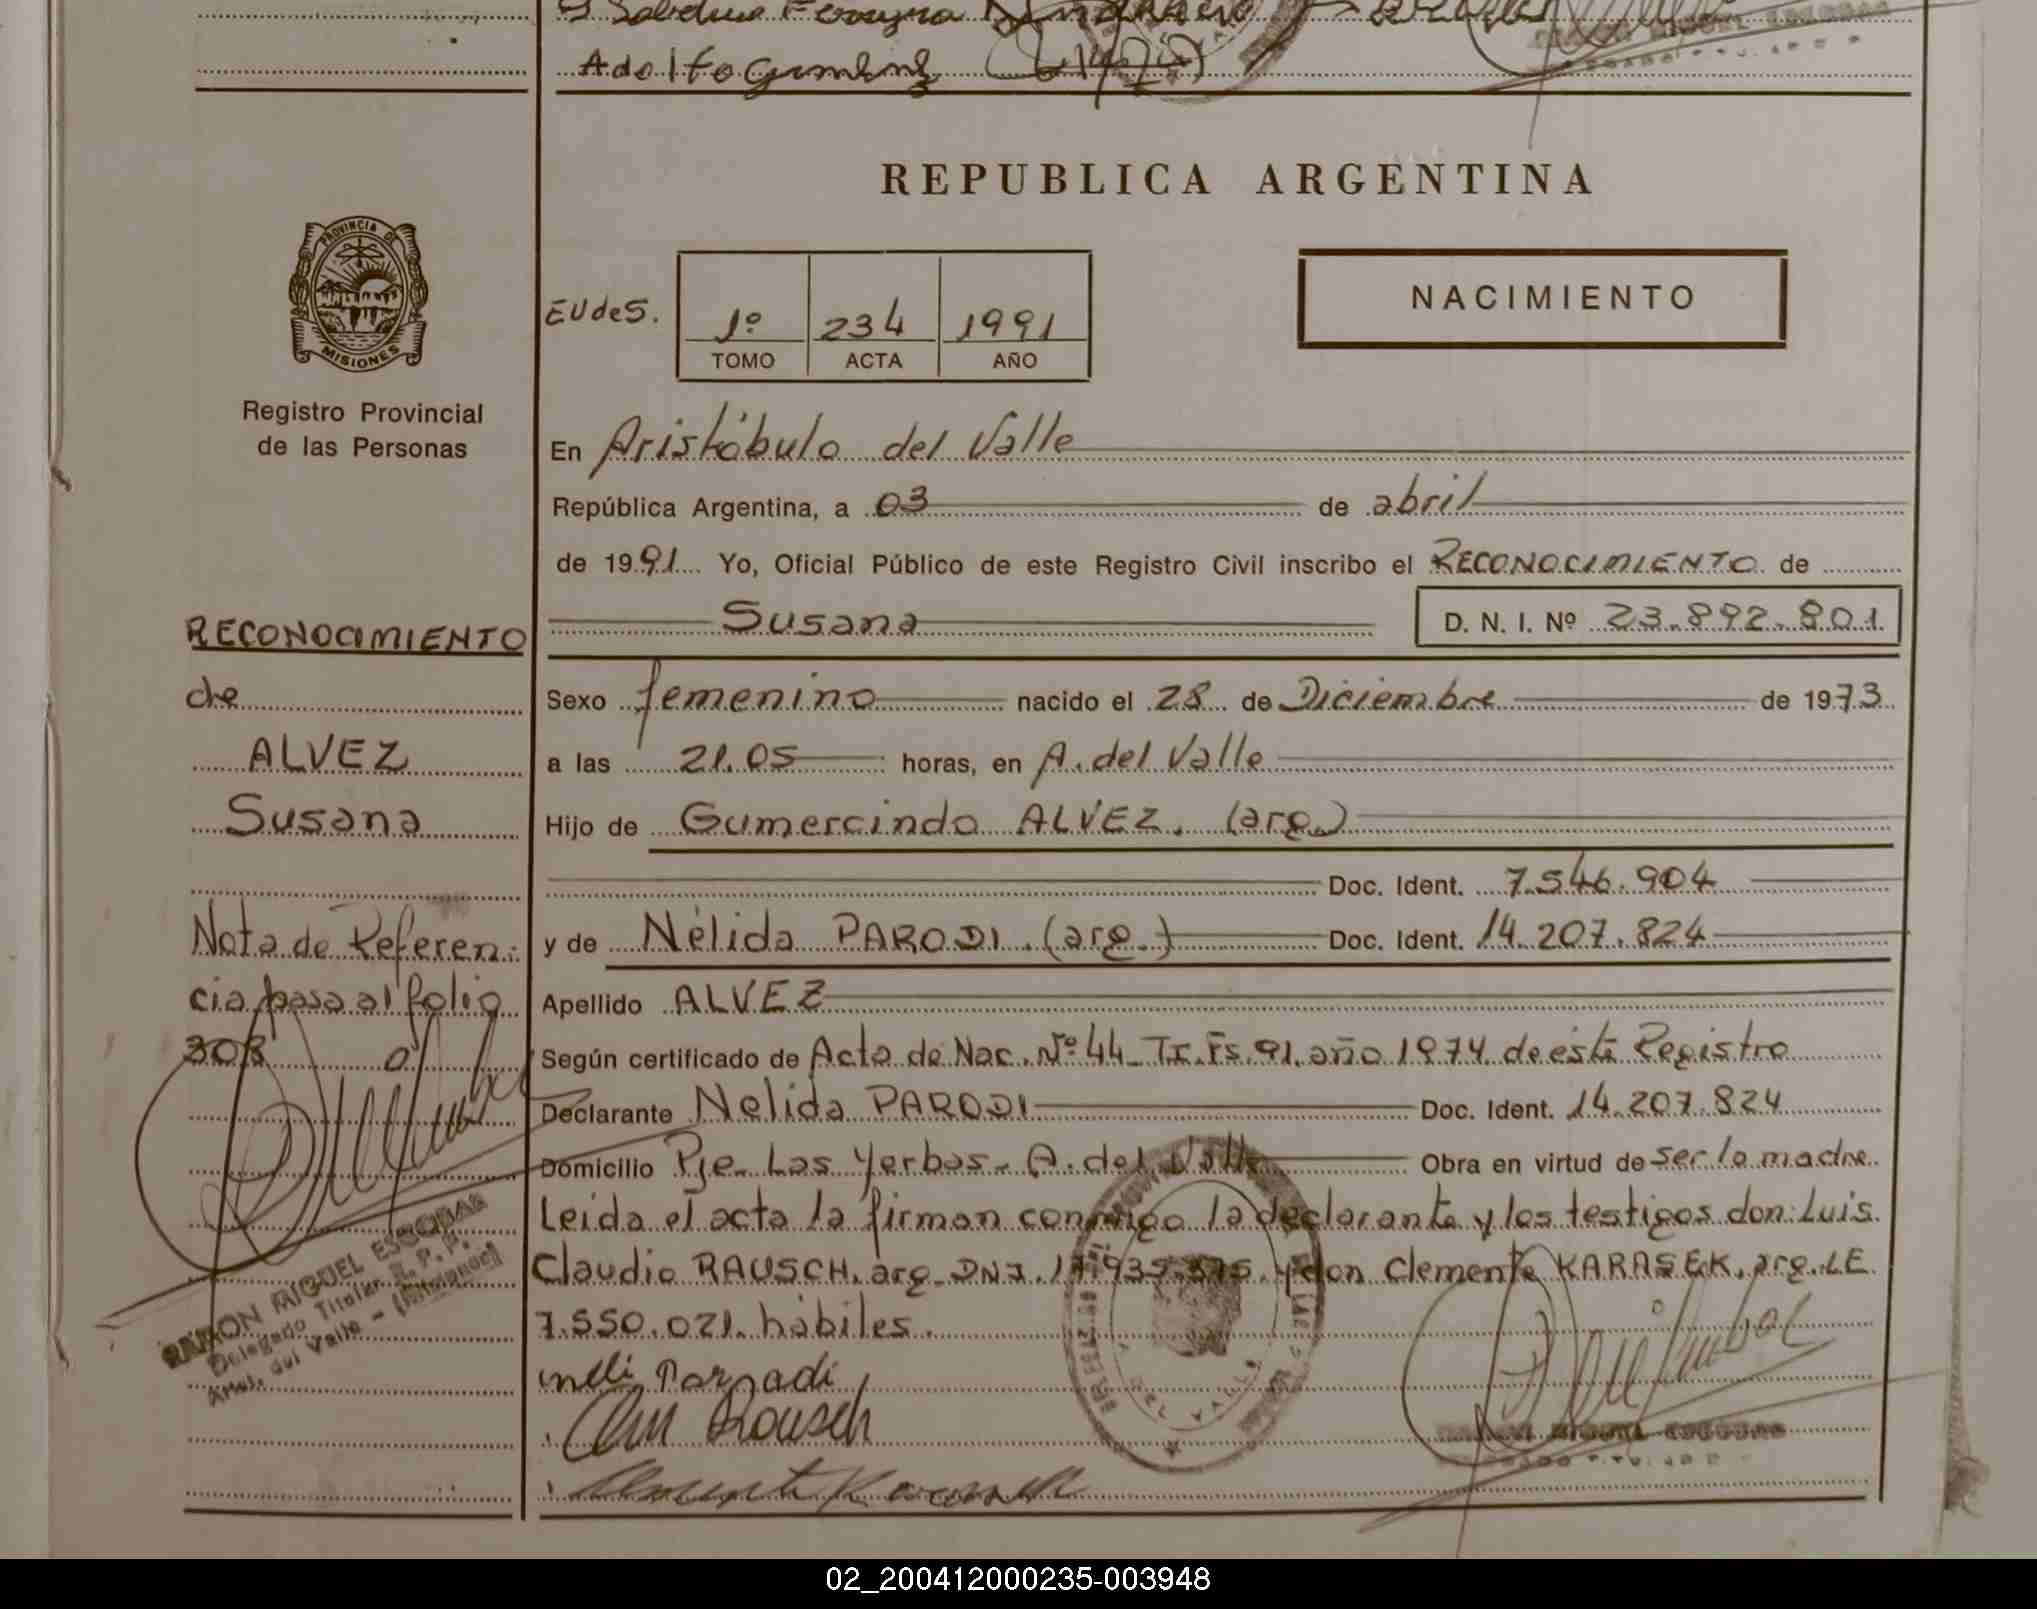 Adolfo Gimenez
REPUBLICA ARGENTINA
PROVINCIA DE
MISIONES
Registro Provincial
de las Personas
EUdeS.
1º 234 1991
TOMO ACTA AÑO
NACIMIENTO
En Aristóbulo del Valle
República Argentina, a 03 de abril
de 1991 Yo, Oficial Público de este Registro Civil inscribo el RECONOCIMIENTO de
Susana D. N. I. Nº 23.892.801
Sexo femenino nacido el 28 de Diciembre de 1973
a las 21.05 horas, en A. del Valle
Hijo de Gumercindo ALVEZ. (arg.)
Doc. Ident. 7.546.904
y de Nélida PARODI. (arg.) Doc. Ident. 14.207.824
Apellido ALVEZ
Según certificado de Acta de Nac. Nº 44 Tr. Fs. 91. año 1974 de este Registro
Declarante Nelida PARODI Doc. Ident. 14.207.824
Domicilio Pje. Las Yerbas - A. del Valle Obra en virtud de ser la madre
Leida el acta la firman conmigo la declarante y los testigos don: Luis
Claudio RAUSCH, arg. DNI. y don Clemente KARASEK, arg. LE
7.550.021. hábiles.
RECONOCIMIENTO
de
ALVEZ
Susana
Nota de Referen-
cia pasa al folio
308
RAMON MIGUEL ESCOBAR
Delegado Titular R. P. P.
Arist. del Valle - (Misiones)
Rausch
RAMON MIGUEL ESCOBAR
02_200412000235-003948